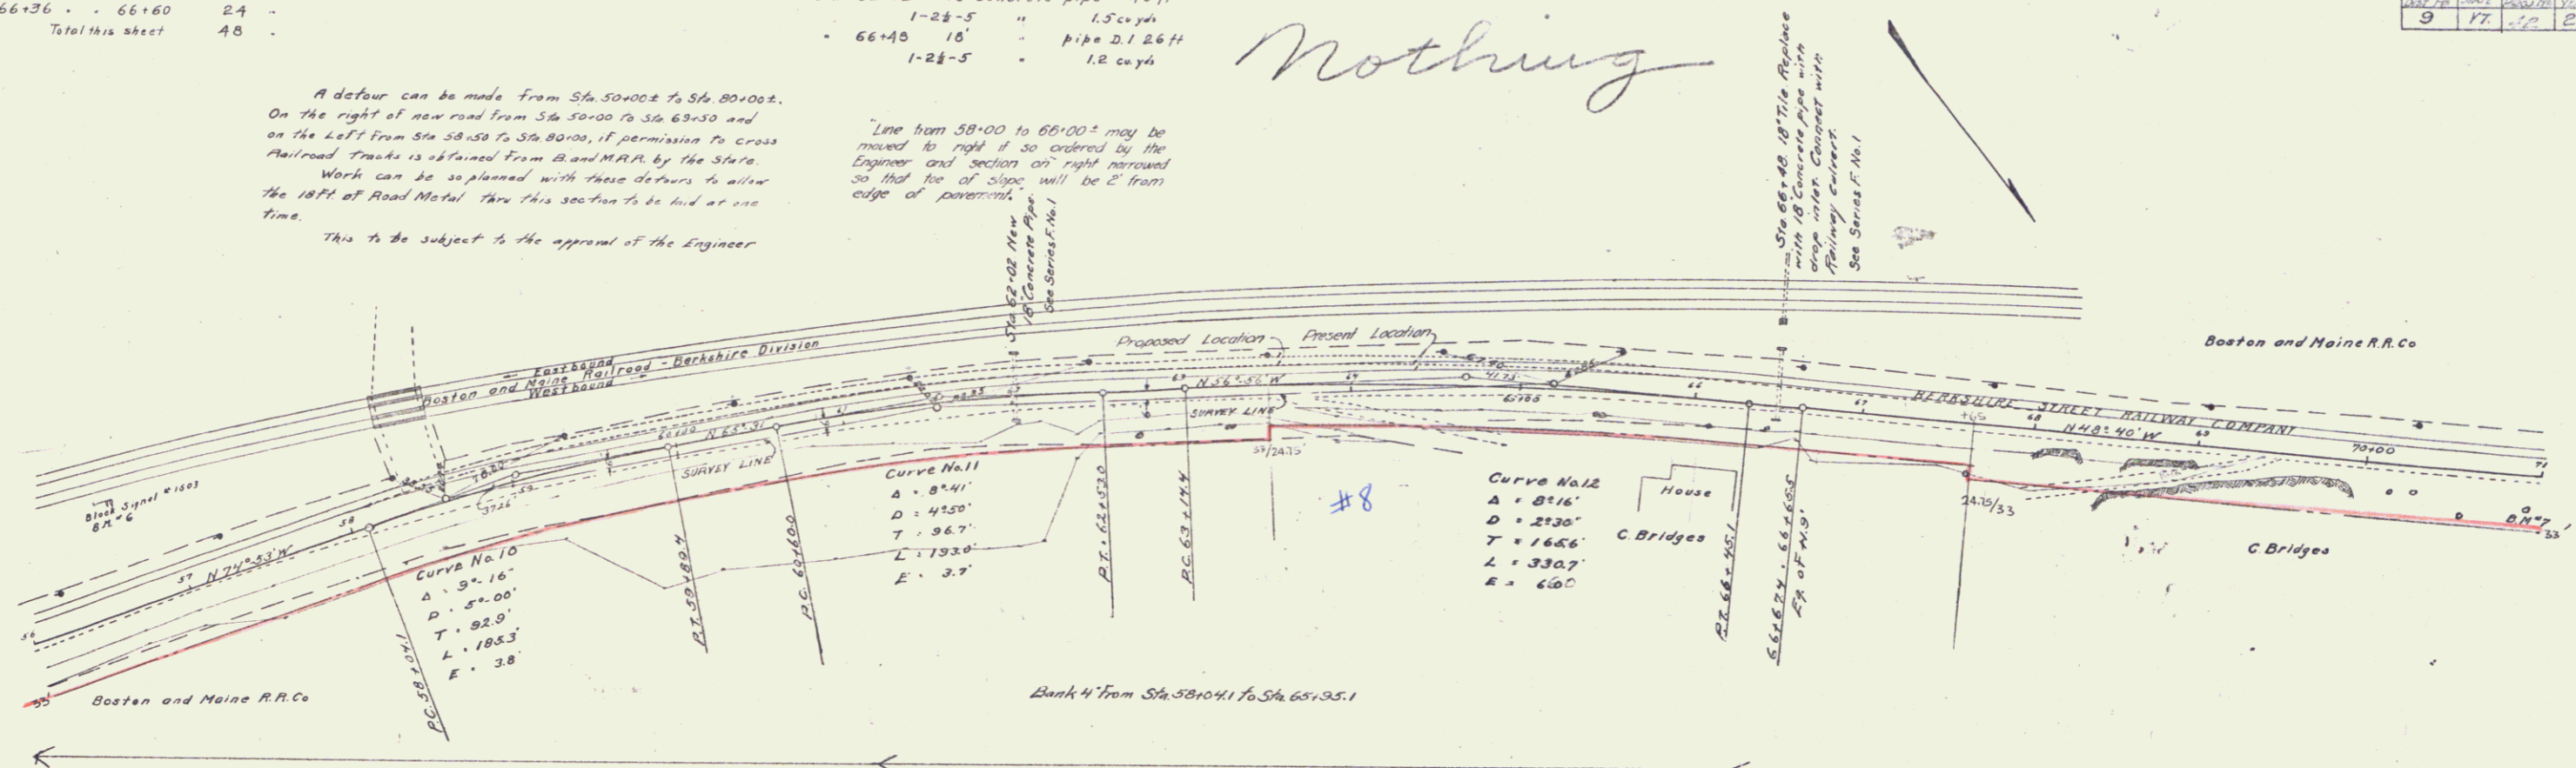 66+36 " " 66+60 24 "
Total this sheet 48 "
1-2½-5 " 1.5 cu yds
" 66+48 18" " pipe D.I 26 ft
1-2½-5 " 1.2 cu. yds
Nothing
9 VT. 2
A detour can be made from Sta. 50+00± to Sta. 80+00±.
On the right of new road from Sta 50+00 to Sta. 69+50 and
on the Left from Sta 58+50 to Sta. 80+00, if permission to cross
Railroad Tracks is obtained from B. and M.R.R. by the State.
Work can be so planned with these detours to allow
the 18 Ft. of Road Metal thru this section to be laid at one
time.
This to be subject to the approval of the Engineer
"Line from 58+00 to 66+00± may be
moved to right if so ordered by the
Engineer and section on right narrowed
so that toe of slope will be 2' from
edge of pavement."
Sta. 62+02 New
18" Concrete Pipe.
See Series F. No. 1
Sta. 66+48. 18" Tile. Replace
with 18" Concrete pipe with
drop inlet. Connect with
Railway Culvert.
See Series F. No. 1
Eastbound
Boston and Maine Railroad - Berkshire Division
Westbound
Proposed Location
Present Location
Boston and Maine R.R. Co
BERKSHIRE STREET RAILWAY COMPANY
N 48°40' W
70+00
71
Block Signal #1503
B.M. #6
56
57
N 74°53' W
58
59
37.26
60+00
N 65°31'
SURVEY LINE
61
63
N 56°56' W
SURVEY LINE
64
41.73
66
67
+65
68
69
33/24.75
24.75/33
B.M #7
33'
33'
Curve No. 10
Δ = 9°-16'
D = 5°-00'
T = 92.9'
L = 185.3'
E = 3.8'
Curve No. 11
Δ = 8°-41'
D = 4°50'
T = 96.7'
L = 193.0'
E = 3.7'
#8
Curve No. 12
Δ = 8°16'
D = 2°30'
T = 165.6'
L = 330.7'
E =
House
C. Bridges
C. Bridges
P.C. 58+04.1
P.T. 59+89.4
P.C. 60+60.0
P.T. = 62+53.0
P.C. 63+14.4
P.T. 66+45.1
66+67.4 = 66+65.5
Eq. of +1.9'
Boston and Maine R.R. Co
Bank 4" From Sta. 58+04.1 to Sta. 65+95.1